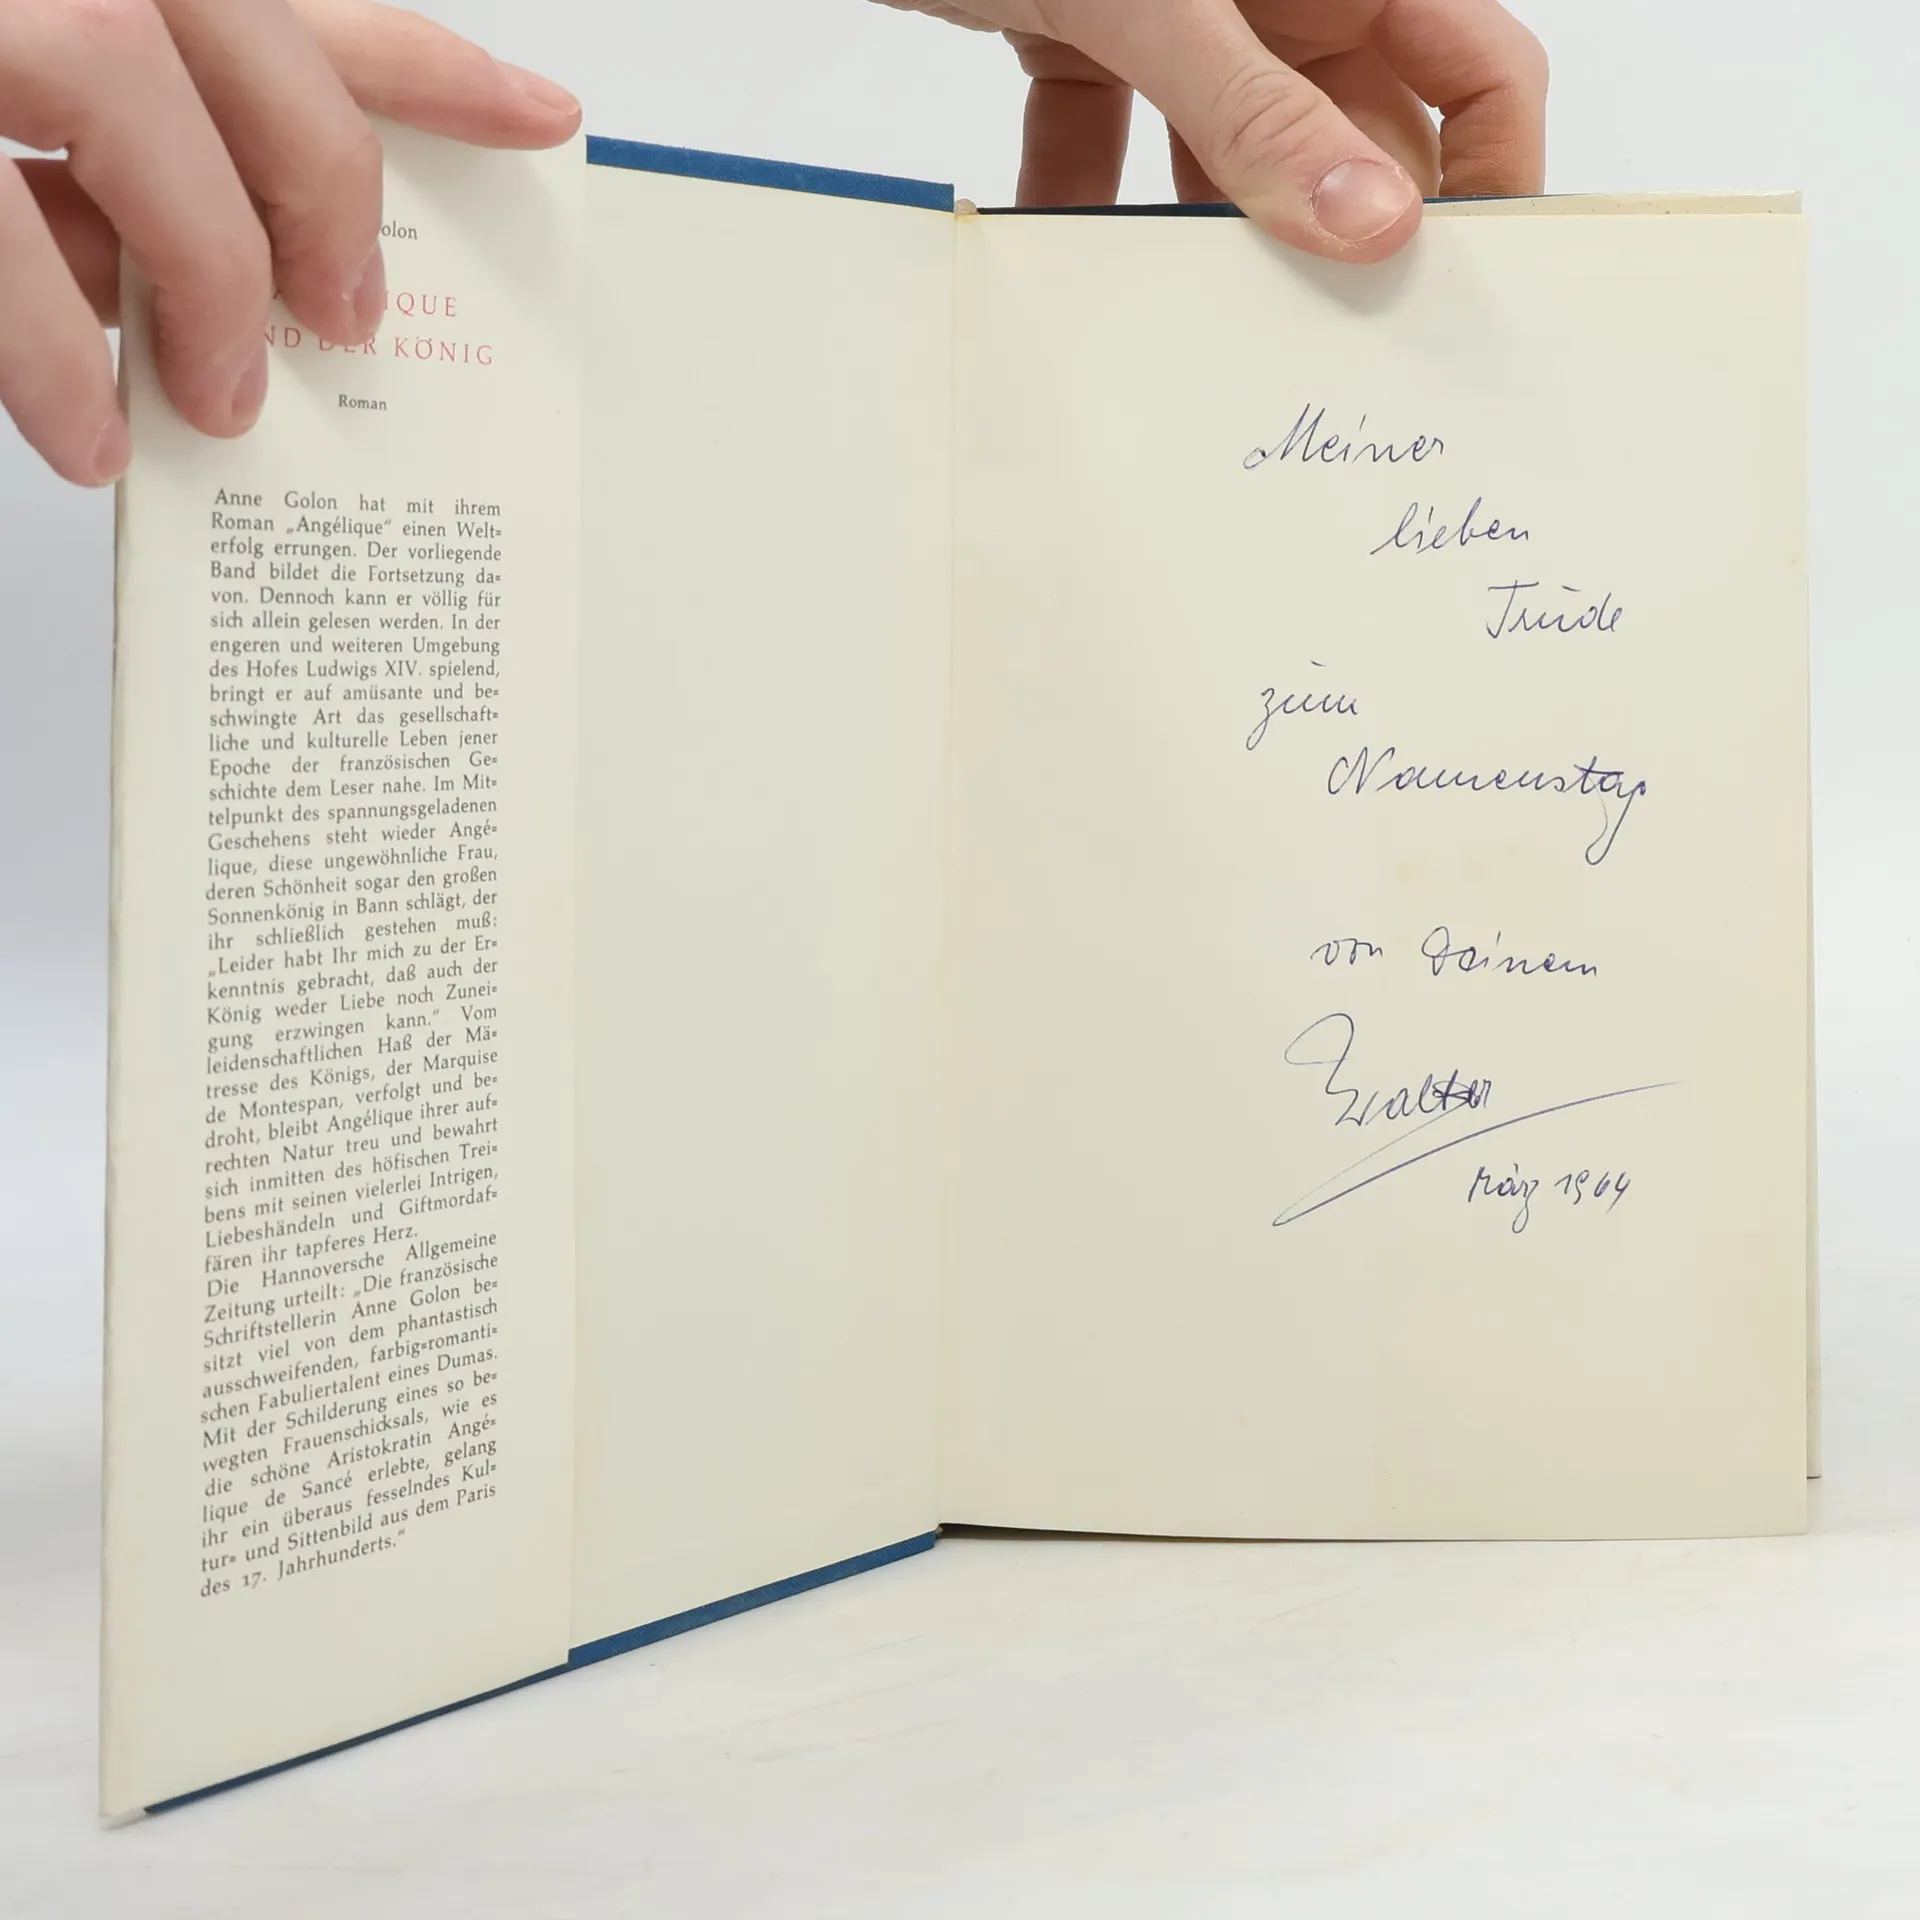 olon
IQUE
ND DER KÖNIG
Roman
Anne Golon hat mit ihrem
Roman „Angélique“ einen Welt=
erfolg errungen. Der vorliegende
Band bildet die Fortsetzung da=
von. Dennoch kann er völlig für
sich allein gelesen werden. In der
engeren und weiteren Umgebung
des Hofes Ludwigs XIV. spielend,
bringt er auf amüsante und be=
schwingte Art das gesellschaft=
liche und kulturelle Leben jener
Epoche der französischen Ge=
schichte dem Leser nahe. Im Mit=
telpunkt des spannungsgeladenen
Geschehens steht wieder Angé=
lique, diese ungewöhnliche Frau,
deren Schönheit sogar den großen
Sonnenkönig in Bann schlägt, der
ihr schließlich gestehen muß:
„Leider habt Ihr mich zu der Er=
kenntnis gebracht, daß auch der
König weder Liebe noch Zunei=
gung erzwingen kann.“ Vom
leidenschaftlichen Haß der Mä=
tresse des Königs, der Marquise
de Montespan, verfolgt und be=
droht, bleibt Angélique ihrer auf=
rechten Natur treu und bewahrt
sich inmitten des höfischen Trei=
bens mit seinen vielerlei Intrigen,
Liebeshändeln und Giftmordaf=
fären ihr tapferes Herz.
Die Hannoversche Allgemeine
Zeitung urteilt: „Die französische
Schriftstellerin Anne Golon be=
sitzt viel von dem phantastisch
ausschweifenden, farbig=romanti=
schen Fabuliertalent eines Dumas.
Mit der Schilderung eines so be=
wegten Frauenschicksals, wie es
die schöne Aristokratin Angé=
lique de Sancé erlebte, gelang
ihr ein überaus fesselndes Kul=
tur= und Sittenbild aus dem Paris
des 17. Jahrhunderts.“
Meiner
lieben
Trude
zum
Namenstag
von Deinem
Walter
März 1964